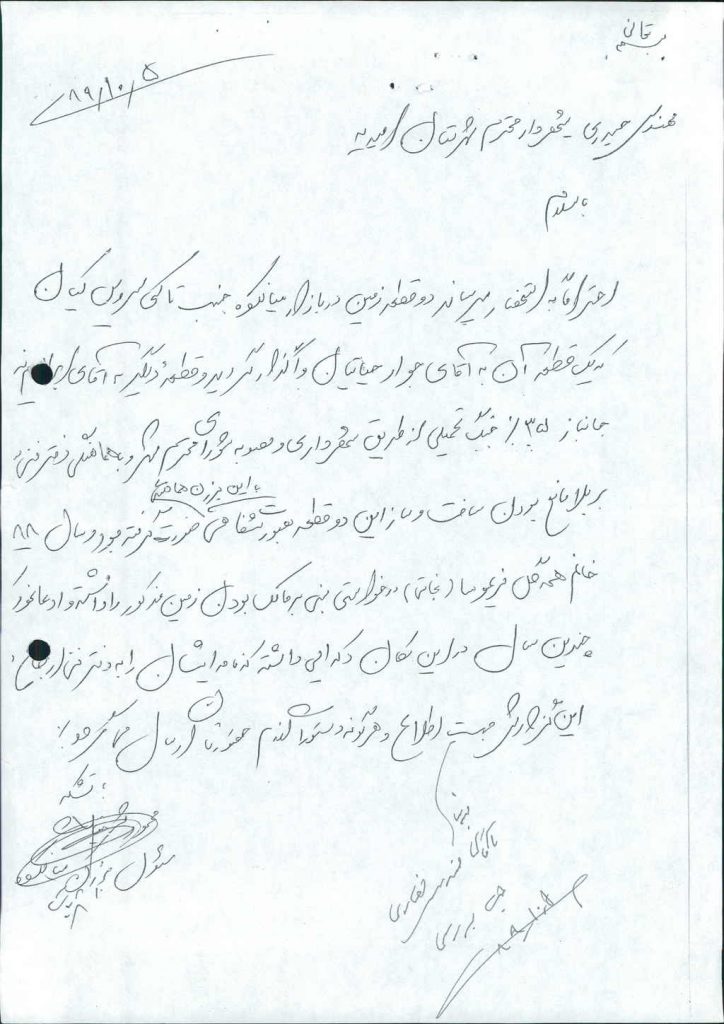 بسمه تعالی
۸۹/۱۰/۵
مهندس حیدری شهردار محترم شهرستان امیدیه
با سلام
احتراماً به استحضار میرساند دو قطعه زمین در بازار میانکوه جنب تاکسی سرویس کیان
که یک قطعه آن به آقای جواد حیاتیان واگذار گردید و قطعه دیگر به آقای
جانباز ۳۵٪ جنگ تحمیلی از طریق شهرداری و مصوبه شورای محترم شهر و با هماهنگی دفتر فنی
بر بلامانع بودن ساخت و ساز این دو قطعه بصورت شفاهی با این برزن هماهنگی صورت گرفته بود و سال ۸۸
خانم فریمونسا (نجاتی) درخواستی مبنی بر مالک بودن زمین مذکور را داشته و ادعا نمود
چندین سال در این مکان دکه ایی داشته که نامه ایشان را به دفتر فنی ارجاع
این گزارش جهت اطلاع و هرگونه دستور اقدام حضورتان ارسال میگردد.
با تشکر
مسئول برزن میانکوه
آقای مهندس غفاری
جهت بررسی
۸۹/۱۰/۸